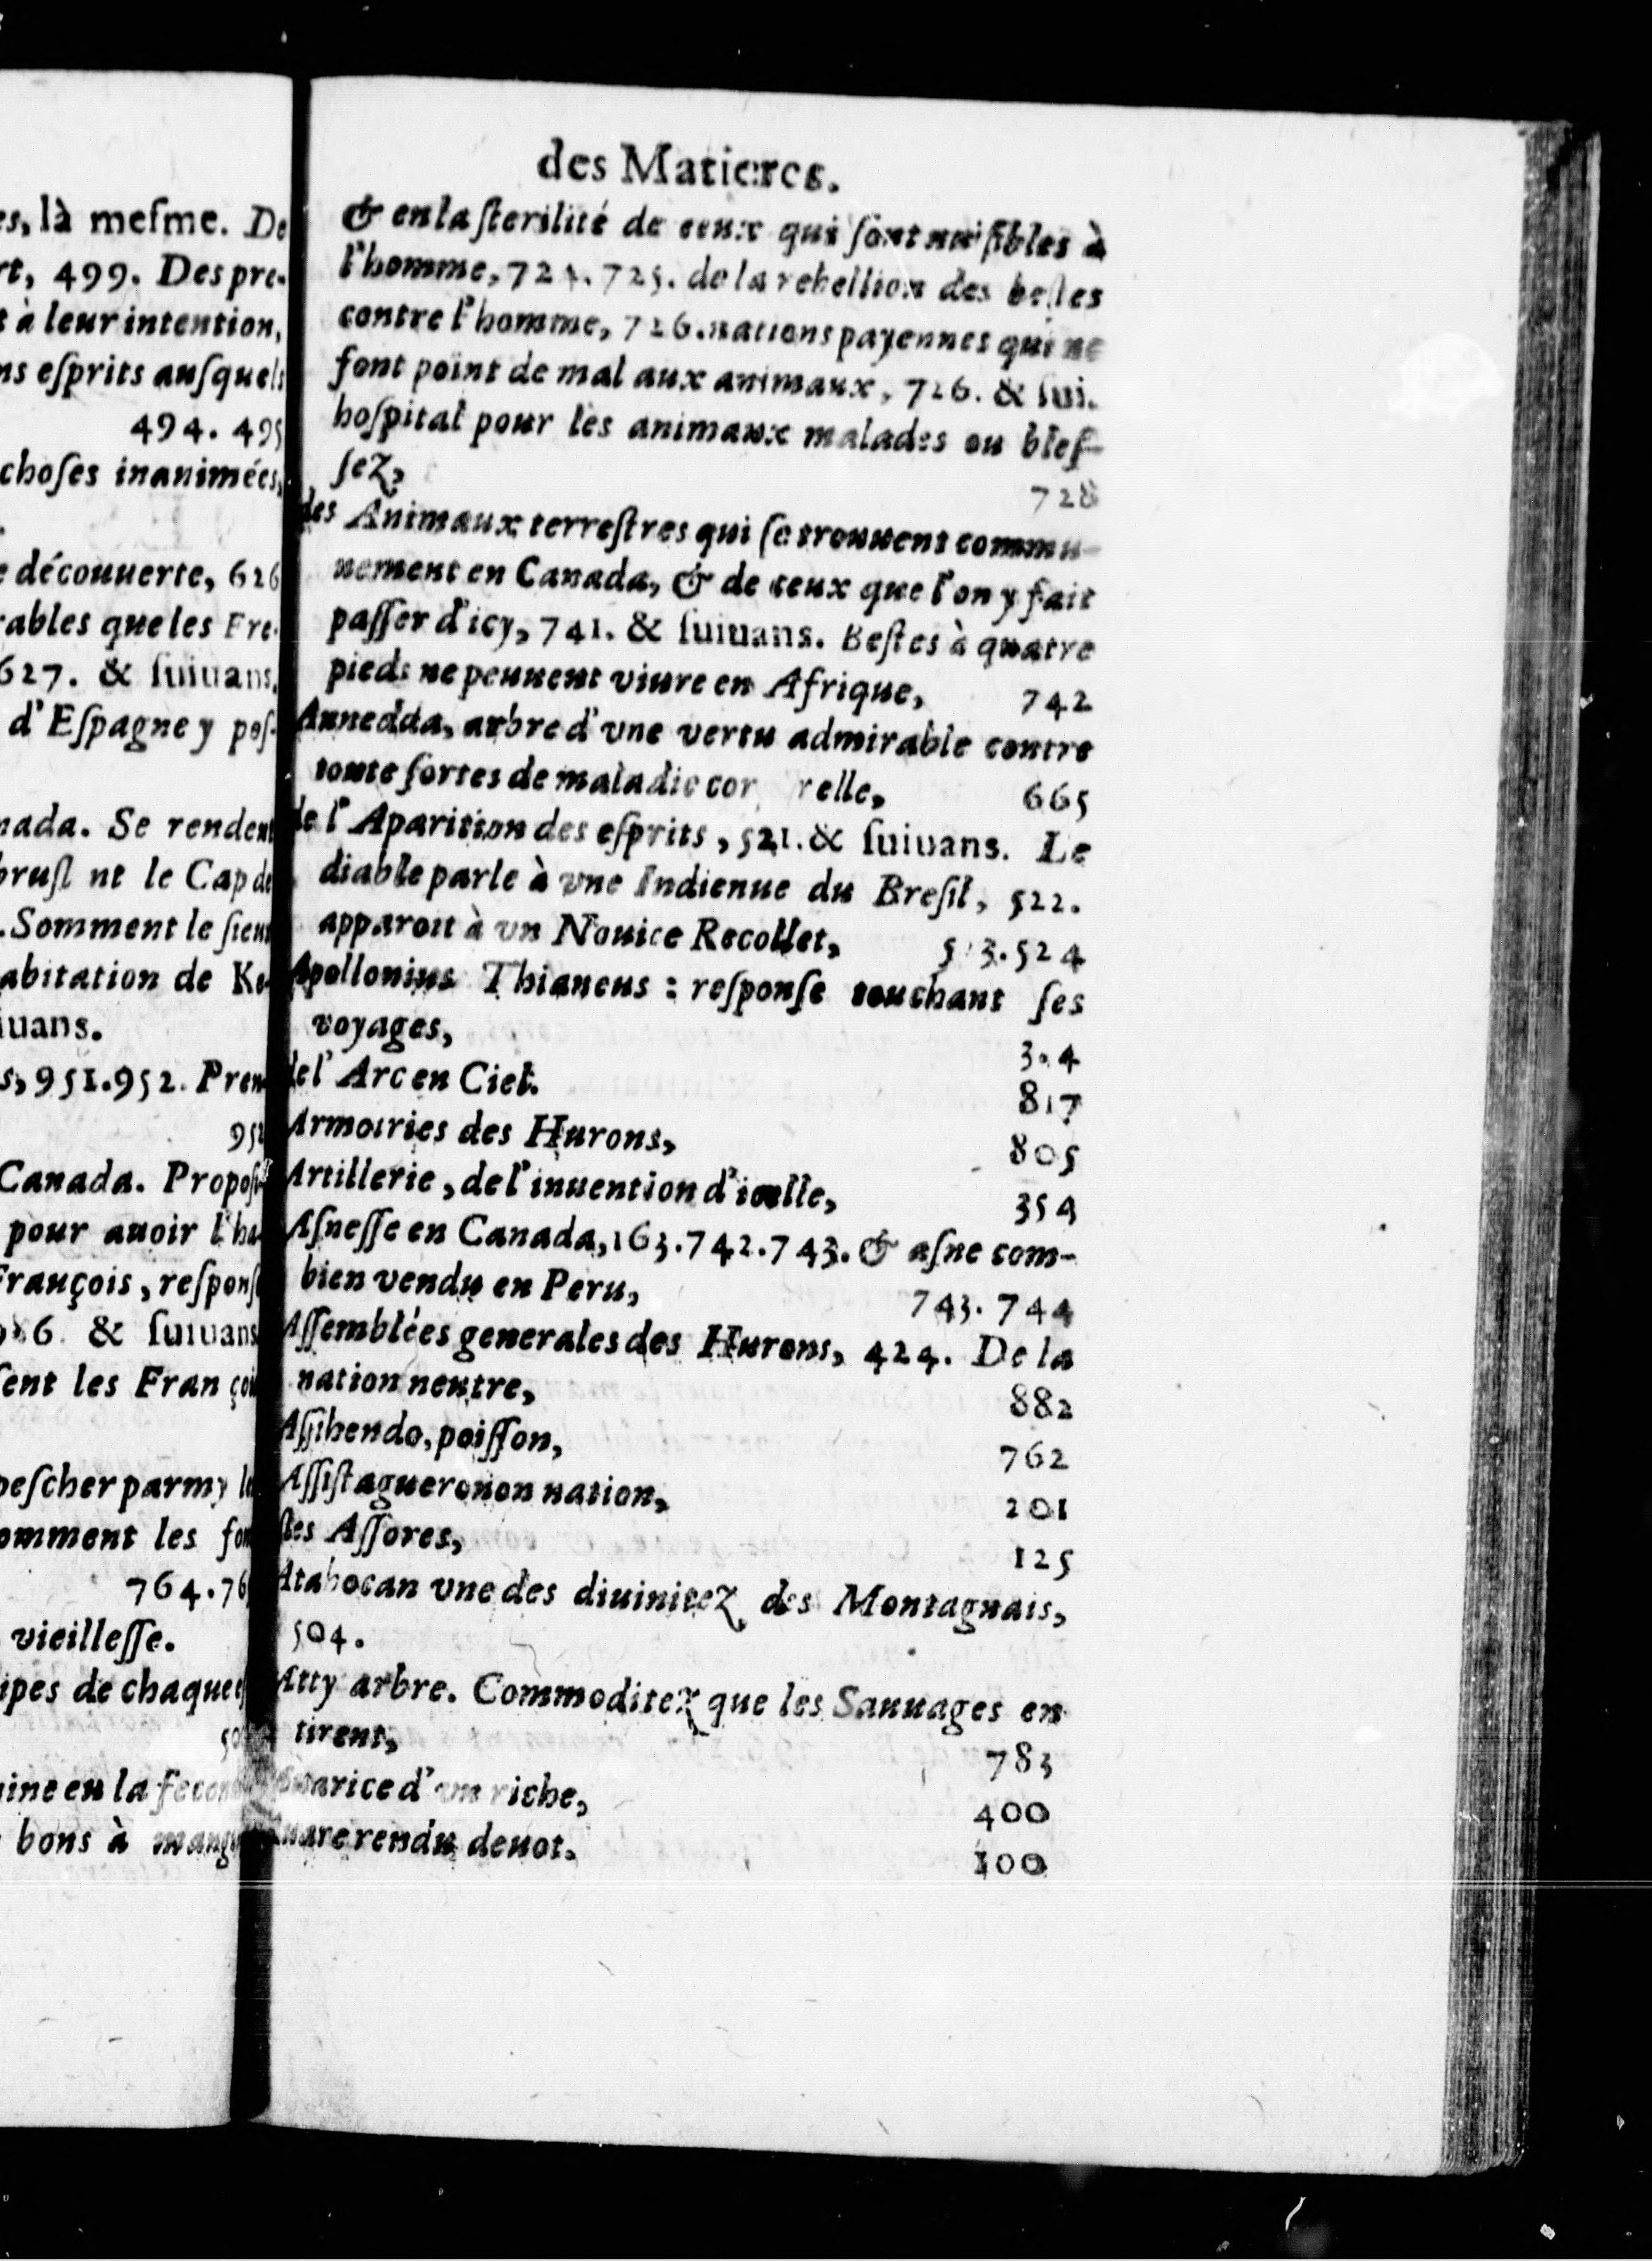 es, là meſme. De
rt, 499. Des pre-
t à leur intention,
ns eſprits auſquels
494. 495
choſes inanimées,
e découuerte, 626
rables que les Fre-
627. & ſuiuans.
d'Eſpagne y poſ-
nada. Se rendent
bruſl nt le Cap de
. Somment le ſieur
abitation de Ke-
iuans.
s, 951.952. Pren
952
Canada. Propoſi-
pour auoir l'ha-
François, reſponſe
986 & ſuiuans
ſent les François
peſcher parmy le
omment les fon
764.76
vieilleſſe.
ipes de chaque
50
gine en la fecon
bons à mang
des Matieres.
& en la ſterilité de ceux qui ſont nuiſibles à
l'homme, 724. 725. de la rebellion des beſtes
contre l'homme, 726. nations payennes qui ne
font point de mal aux animaux, 726. & ſui.
hoſpital pour les animaux malades ou bleſ-
ſez, 728
des Animaux terreſtres qui ſe trouuent commu-
nement en Canada, & de ceux que l'on y fait
paſſer d'icy, 741. & ſuiuans. Beſtes à quatre
pieds ne peuuent viure en Afrique, 742
Annedda, arbre d'vne vertu admirable contre
toute ſortes de maladie cor relle, 665
de l'Aparition des eſprits, 521. & ſuiuans. Le
diable parle à vne Indienue du Breſil, 522.
apparoit à vn Nouice Recollet, 5 3.524
Apollonius Thianeus : reſponſe touchant ſes
voyages, 3 4
de l'Arc en Ciel. 817
Armoiries des Hurons, 805
Artillerie, de l'inuention d'icelle, 354
Aſneſſe en Canada, 163.742.743. & aſne com-
bien vendu en Peru, 743. 744
Aſſemblées generales des Hurons, 424. De la
nation neutre, 882
Aſſihendo, poiſſon, 762
Aſſiſtagueronon nation, 201
ſles Aſſores, 125
Atahocan vne des diuinitez des Montagnais,
504.
Atty arbre. Commoditez que les Sauuages en
tirent, 783
Auarice d'vn riche, 400
Auare rendu deuot. 100